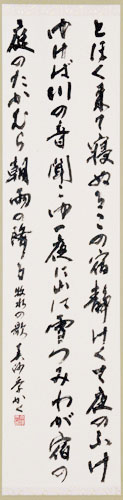 とほく来て寝ぬるこの宿静けくて夜のふけ
ゆけば川の音聞こゆ一夜に山に雪つみわが宿の
庭のたかむら朝雨の降る 牧水の歌 かく